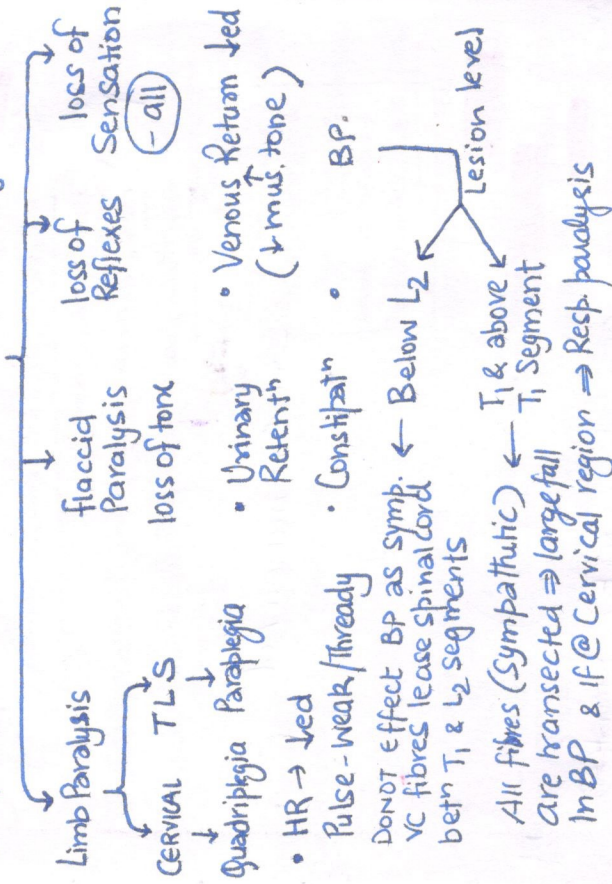 Limb Paralysis
CERVICAL TLS
Quadriplegia Paraplegia
flaccid
Paralysis
loss of tone
loss of
Reflexes
loss of
Sensation
- all
• HR → ↓ed
Pulse-Weak/Thready
• Urinary
Retentⁿ
• Constipatⁿ
• Venous Return ↓ed
(↓ mus. tone)
• BP.
Lesion level
DO NOT Effect BP as symp. ← Below L2
VC fibres lease spinal cord
betn T1 & L2 segments
All fibres (Sympathetic) ← T1 & above
T1 Segment
are transected ⇒ large fall
In BP & If @ Cervical region ⇒ Resp. paralysis